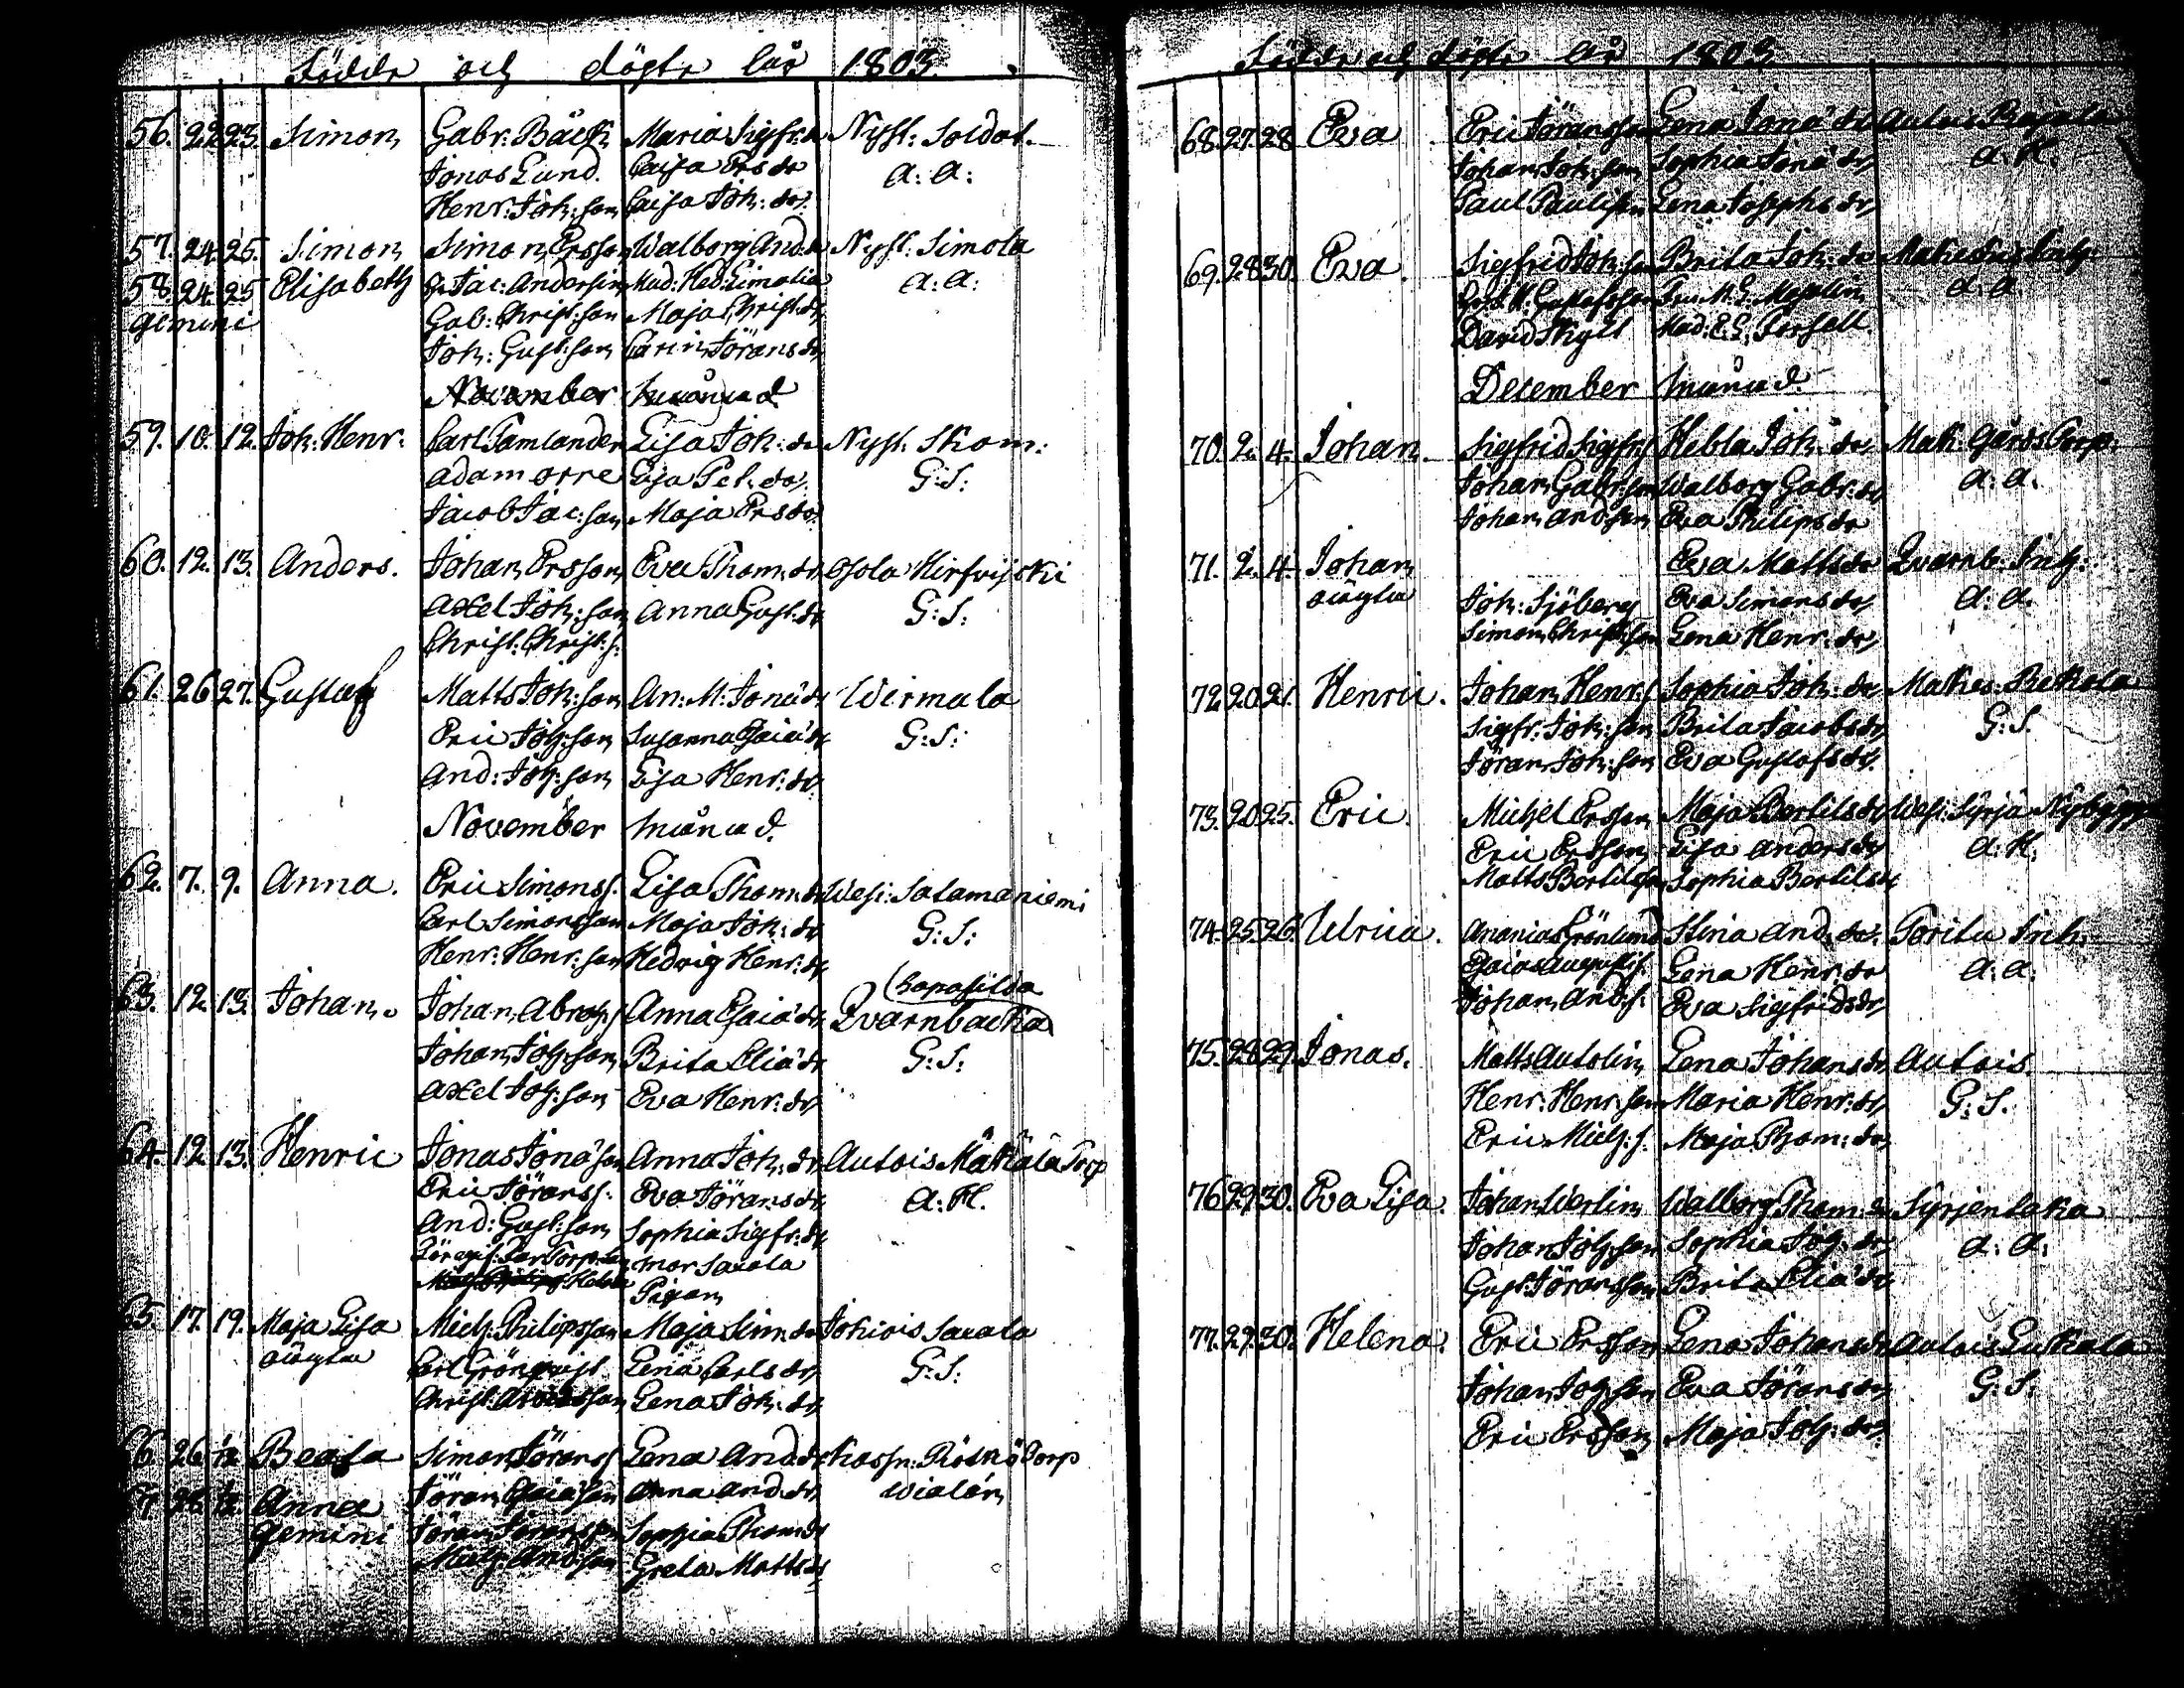 Födde och döpte år 1803.
56. 22. 23. Simon Gabr: Bäck Maria Sigfr: dr Nyst: Soldat.
Jonas Lund. Caisa Ersdr A: A:
Henr: Joh: son Caisa Joh: dr.
57. 24. 25. Simon Simon Ersson Walborg And: dr Nyst: Simola
58. 24. 25 Elisabeth Jac: Andersin Mad: Hed: Limatia A: A:
Gemini Gab: Christ: son Maja Christ: dr
Joh: Gust: son Carin Jörans dr
November månad
59. 10. 12. Joh: Henr: Carl Tamlander Lisa Joh: dr Nyst: Skom:
Adam Orre Lisa Pet: dr G: S:
Jacob Jac: son Maja Ersdr.
60. 12. 13. Anders. Johan Ersson Eva Thom: dr Osola Hirsvijski
Axel Joh: son Anna Gust: dr G: S:
Christ: Christ: s:
61. 26 27. Gustaf Matts Joh: son An: M: Jona dr Wirmala
Eric Joh: son Susanna Esaiæ dr G: S:
And: Joh: son Lisa Henr: dr
November månad.
62. 7. 9. Anna. Eric Simonss. Lisa Thom: dr West: Salamaniemi
Carl Simonsson Maja Joh: dr G: S:
Henr: Henr: son Hedvig Henr: dr
63. 12. 13. Johan. Johan Abrah: s Anna Esaiæ dr Qvarnbacka
Johan Joh: son Brita Eliæ dr G: S:
Axel Joh: son Eva Henr: dr
64. 12. 13. Henric Jonas Jona son Anna Joh: dr Autois Mäkälä Torp
Eric Jöranss. Eva Jörans dr A: H.
And: Gust: son Sophia Sigfr: dr
mor Sacola
Pigan
65. 17. 19. Maja Lisa Mich: Philipsson Maja Sim: dr Jokiois Sacola
oägta Carl Grönqvist Lena Carls dr G: S:
Christ: Lena Joh: dr
66. 26. Beata Simon Jöranss Lena And: dr Torp
67. 28 Anna Jöran Esaiæ son Anna And: dr
Gemini Jöran Jöransson Sophia Thom: dr
Mich: And: son Greta Matts dr
Födde och döpte År 1803
68. 27. 28 Eva Eric Jöransson Lena Jona dr Autois
Johan Joh: son Sophia Jona dr A: H.
Paul Paulsson Lena Josephs dr
69. 28 30. Eva. Sigfrid Joh: son Brita Joh: dr
M. Gustafsson A: A.
David Skytt Mad: E: G: Forsell
December månad.
70. 2. 4. Johan Sigfrid Sigfr: s Hebla Joh: dr Matk: Gårds Torp.
Johan Gabr: son Walborg Gabr: dr A: A.
Johan And: son Eva Philips dr
71. 2. 4. Johan Eva Matts dr Qvarnb: Inh:
oägta Joh: Sjöberg Eva Simons dr A: A.
Simon Christ: son Lena Henr: dr
72. 20 21. Henric. Johan Henr: s Sophia Joh: dr
Sigfr: Joh: son Brita Jacobs dr G: S.
Jöran Joh: son Eva Gustafs dr.
73. 20 25. Eric. Michel Ersson Maja Bertils dr West: Syrjä Nybygge
Eric Ersson Lisa Anders dr A: H.
Matts Bertilsson Sophia Bertils dr
74. 25. 26. Ulrica. Ananias Grönlund Stina And: dr. Toritu Inh:
Esaias August: s. Lena Henr: dr A: A:
Johan And: s. Eva Sigfrids dr
75. 28 29. Jonas. Matts Autolin Lena Johans dr Autois
Henr: Henr: son Maria Henr: dr G: S.
Eric Mich: s. Maja Thom: dr
76 29 30. Eva Lisa. Johan Werlin Walborg Thom: dr Syrjentaka
Johan Joh: son Sophia Joh: dr A: A.
Gust: Jöransson Brita Eliæ dr
77. 29 30. Helena. Eric Ersson Lena Johans dr Autois
Johan Joh: son Eva Jörans dr G: S.
Eric Ersson Maja Joh: dr